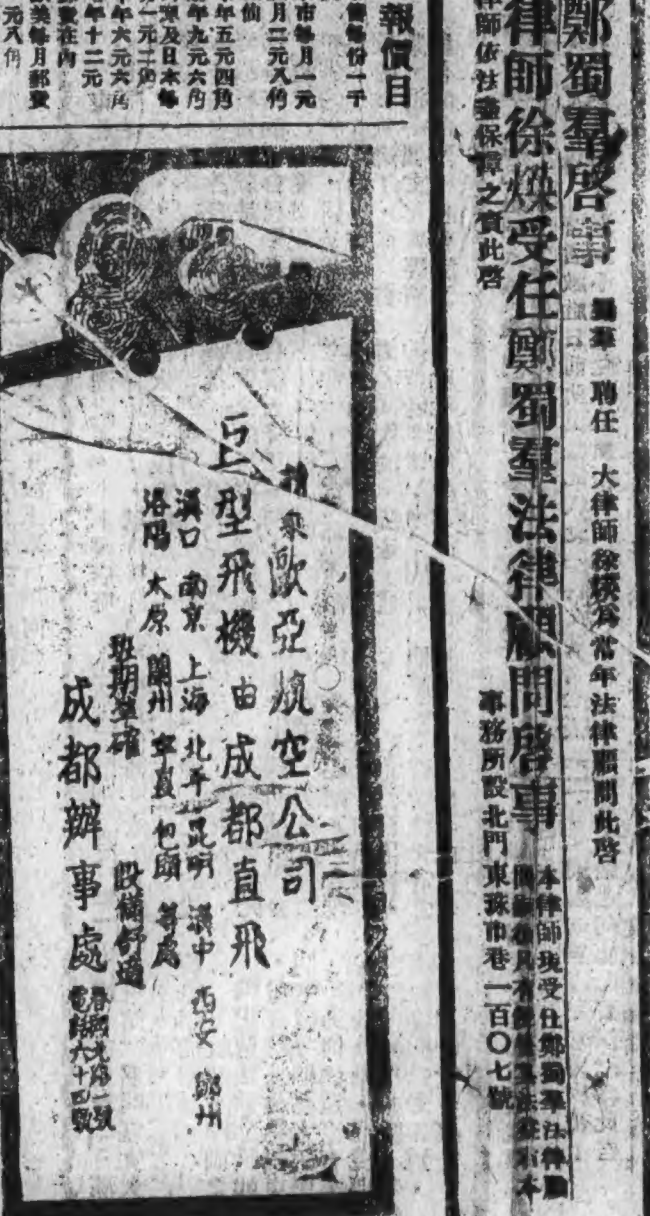 鄭蜀羣啓事
蜀羣 聘任 大律師徐煐爲常年法律顧問此啓
律師徐煐受任鄭蜀羣法律顧問啓事
本律師現受任鄭蜀羣法律顧
律師依法盡保障之責此啓
事務所設北門東珠市巷一百〇七號
報價目
份一千
市每月一元
月二元八角
年五元四角
年九元六角
及日本每
一元二角
年六元六角
年十二元
費在內
美每月郵費
元八角
乘歐亞航空公司
巨型飛機由成都直飛
漢口 南京 上海 北平 昆明 漢中 西安 鄭州
洛陽 太原 蘭州 寧夏 包頭 等處
班期準確 設備舒適
成都辦事處
電話六十四號